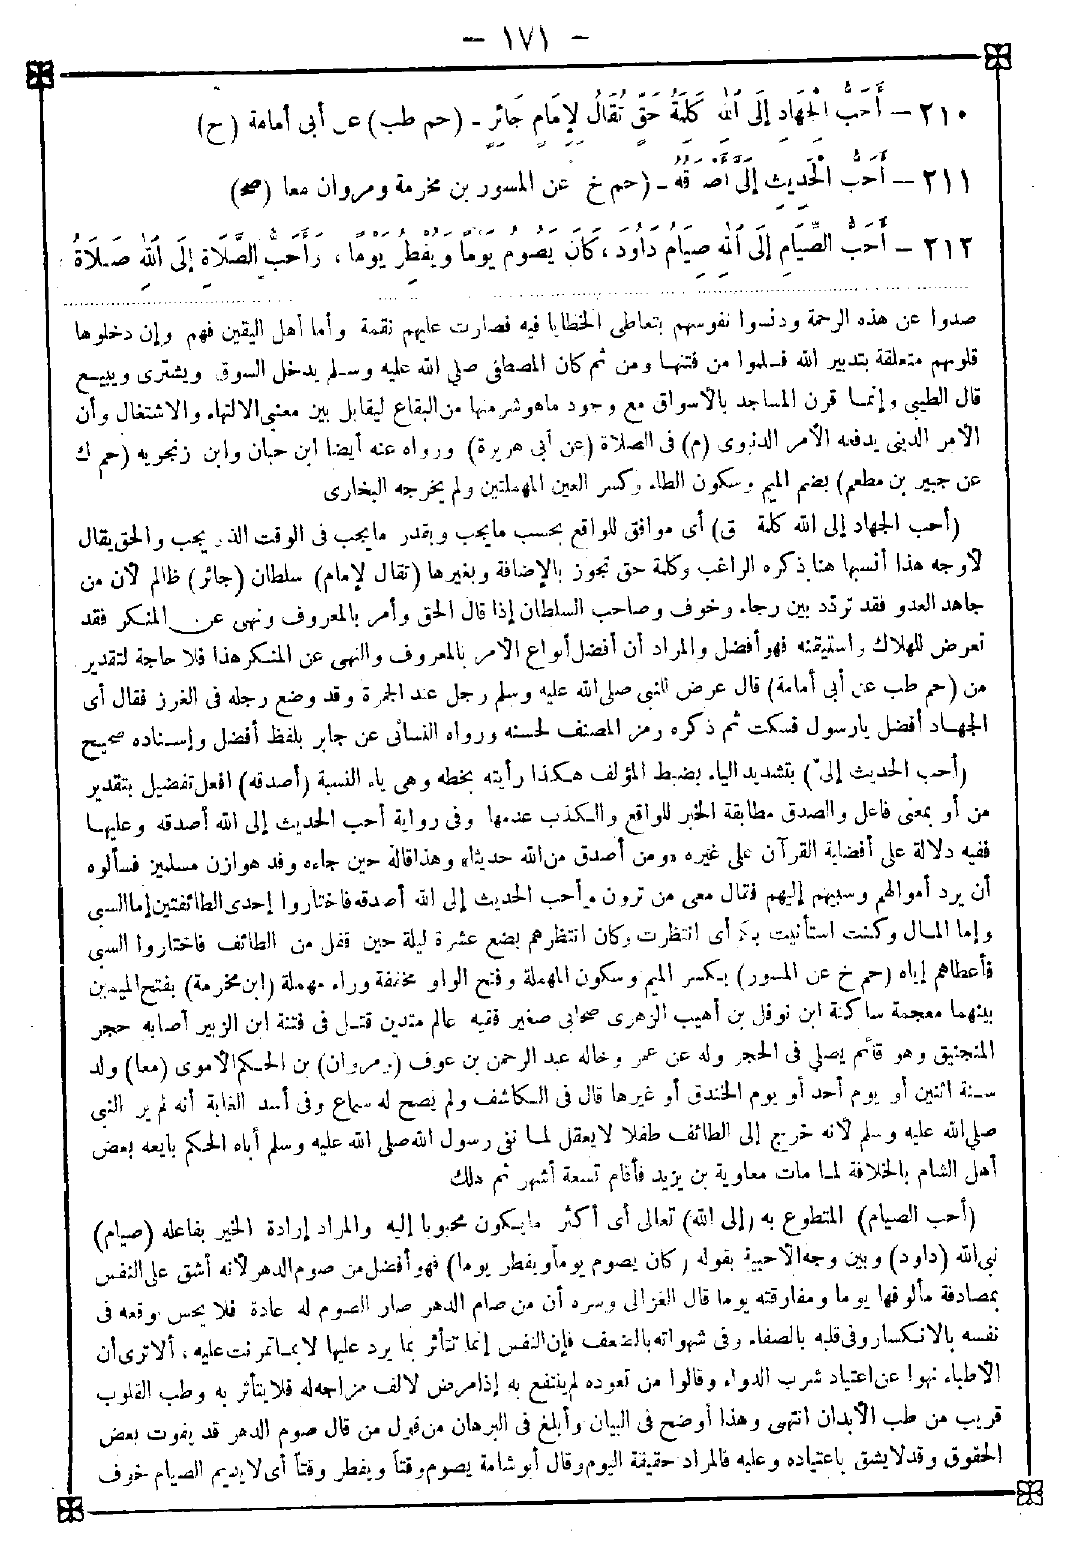 - ١٧١ -
٢١٠ - أَحَبُّ الْجِهَادِ إِلَى اللهِ كَلِمَةُ حَقٍّ تُقَالُ لِإِمَامٍ جَائِرٍ - (حم طب) عن أبى أمامة (ح)
٢١١ - أَحَبُّ الْحَدِيثِ إِلَىَّ أَصْدَقُهُ - (حم خ) عن المسور بن مخرمة ومروان معا (صح)
٢١٢ - أَحَبُّ الصِّيَامِ إِلَى اللهِ صِيَامُ دَاوُدَ، كَانَ يَصُومُ يَوْمًا وَيُفْطِرُ يَوْمًا، وَأَحَبُّ الصَّلَاةِ إِلَى اللهِ صَلَاةُ
صدوا عن هذه الرحمة ودنسوا نفوسهم بتعاطى الخطايا فيه فصارت عليهم نقمة وأما أهل اليقين فهم وإن دخلوها
قلوبهم متعلقة بتدبير الله فسلموا من فتنها ومن ثم كان المصطفى صلى الله عليه وسلم يدخل السوق ويشترى ويبيع
قال الطيبى وإنما قرن المساجد بالأسواق مع وجود ماهو شر منها من البقاع ليقابل بين معنى الالتهاء والاشتغال وأن
الأمر الدينى يدفعه الأمر الدنيوى (م) فى الصلاة (عن أبى هريرة) ورواه عنه أيضا ابن حبان وابن زنجويه (حم ك
عن جبير بن مطعم) بضم الميم وسكون الطاء وكسر العين المهملتين ولم يخرجه البخارى
(أحب الجهاد إلى الله كلمة حق) أى موافق للواقع بحسب مايجب وبقدر مايجب فى الوقت الذى يجب والحق يقال
لأوجه هذا أنسبها هنا ذكره الراغب وكلمة حق تجوز بالإضافة وبغيرها (تقال لإمام) سلطان (جائر) ظالم لأن من
جاهد العدو فقد تردّد بين رجاء وخوف وصاحب السلطان إذا قال الحق وأمر بالمعروف ونهى عن المنكر فقد
تعرض للهلاك واستيقنه فهو أفضل والمراد أن أفضل أنواع الأمر بالمعروف والنهى عن المنكر هذا فلا حاجة لتقدير
من (حم طب عن أبى أمامة) قال عرض للنبى صلى الله عليه وسلم رجل عند الجمرة وقد وضع رجله فى الغرز فقال أى
الجهاد أفضل يارسول فسكت ثم ذكره رمز المصنف لحسنه ورواه النسائى عن جابر بلفظ أفضل وإسناده صحيح
(أحب الحديث إلىّ) بتشديد الياء بضبط المؤلف هكذا رأيته بخطه وهى ياء النسبة (أصدقه) افعل تفضيل بتقدير
من أو بمعنى فاعل والصدق مطابقة الخبر للواقع والكذب عدمها وفى رواية أحب الحديث إلى الله أصدقه وعليها
ففيه دلالة على أفضلية القرآن على غيره «ومن أصدق من الله حديثا» وهذا قاله حين جاءه وفد هوازن مسلمين فسألوه
أن يرد أموالهم وسبيهم إليهم فقال معى من ترون وأحب الحديث إلى الله أصدقه فاختاروا إحدى الطائفتين إما السبى
وإما المال وكنت استأنيت بكم أى انتظرت وكان انتظرهم بضع عشرة ليلة حين قفل من الطائف فاختاروا السبى
فأعطاهم إياه (حم خ عن المسور) بكسر الميم وسكون المهملة وفتح الواو مخففة وراء مهملة (ابن مخرمة) بفتح الميمين
بينهما معجمة ساكنة ابن نوفل بن أهيب الزهرى صحابى صغير فقيه عالم متدين قتل فى فتنة ابن الزبير أصابه حجر
المنجنيق وهو قائم يصلى فى الحجر وله عن عمر وخاله عبد الرحمن بن عوف (ومروان) بن الحكم الأموى (معا) ولد
سنة اثنين أو يوم أحد أو يوم الخندق أو غيرها قال فى الكاشف ولم يصح له سماع وفى أسد الغابة أنه لم ير النبى
صلى الله عليه وسلم لأنه خرج إلى الطائف طفلا لايعقل لما نفى رسول الله صلى الله عليه وسلم أباه الحكم بايعه بعض
أهل الشام بالخلافة لما مات معاوية بن يزيد فأقام تسعة أشهر ثم هلك
(أحب الصيام) المتطوع به (إلى الله) تعالى أى أكثر مايكون محبوبا إليه والمراد إرادة الخير بفاعله (صيام)
نبى الله (داود) وبين وجه الأحبية بقوله (كان يصوم يوما ويفطر يوما) فهو أفضل من صوم الدهر لأنه أشق على النفس
بمصادفة مألوفها يوما ومفارقته يوما قال الغزالى وسره أن من صام الدهر صار الصوم له عادة فلا يحس وقعه فى
نفسه بالانكسار وفى قلبه بالصفاء وفى شهواته بالضعف فإن النفس إنما تتأثر بما يرد عليها لا بما تمرنت عليه، ألا ترى أن
الأطباء نهوا عن اعتياد شرب الدواء وقالوا من تعوده لم ينتفع به إذا مرض لالف مزاجه له فلا يتأثر به وطب القلوب
قريب من طب الأبدان انتهى وهذا أوضح فى البيان وأبلغ فى البرهان من قول من قال صوم الدهر قد يفوت بعض
الحقوق وقد لا يشق باعتياده وعليه فالمراد حقيقة اليوم وقال أبو شامة يصوم وقتاً ويفطر وقتاً أى لا يديم الصيام خوف